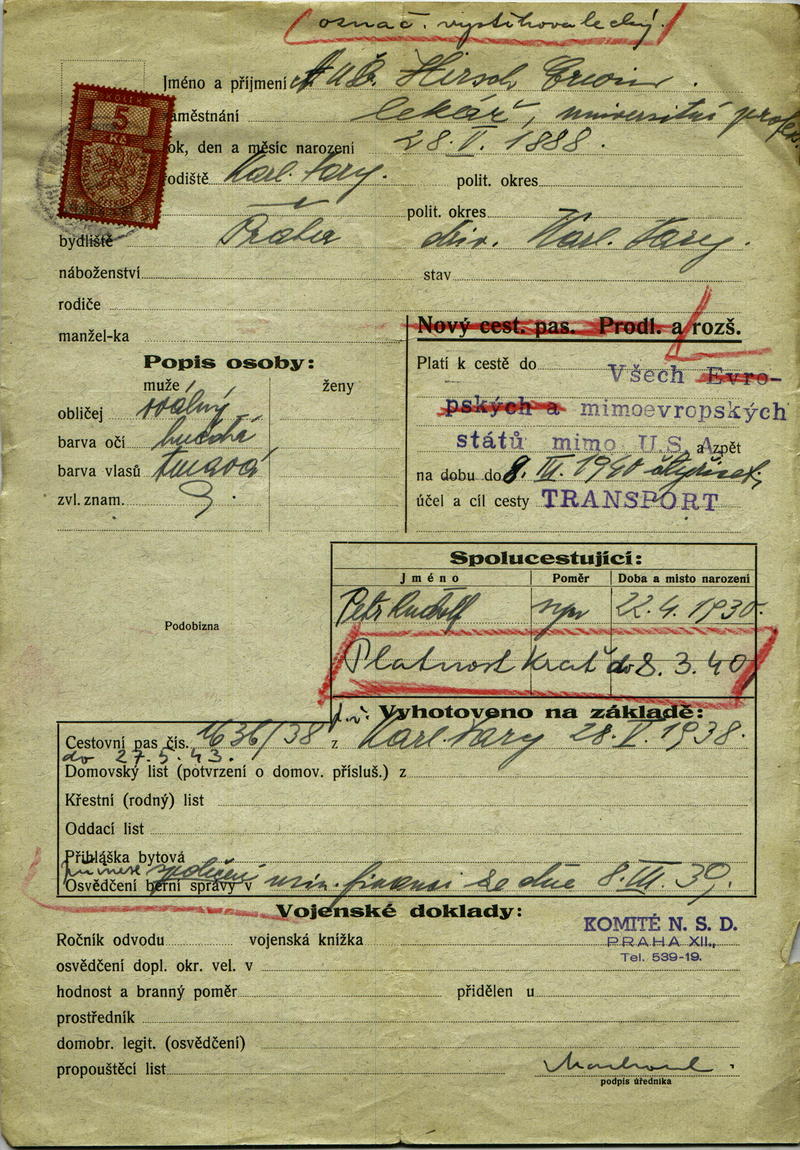 označ. vystěhovalecký.
Jméno a příjmení MUDr. Hirsch Erwin.
KOLEK
5
Kč
aměstnání lékař, universitní profes.
ok, den a měsíc narození 28. V. 1888.
odiště Karl. Vary. polit. okres
polit. okres
bydliště Praha dův. Karl. Vary.
náboženství stav
rodiče
manžel-ka
Nový cest. pas. Prodl. a rozš.
Popis osoby:
muže ženy
obličej oválný
barva očí hnědá
barva vlasů tmavá
zvl. znam.
Platí k cestě do Všech Evro-
pských a mimoevropských
států mimo U.S.A. a zpět
na dobu do 8. III. 1940
účel a cíl cesty TRANSPORT
Spolucestující:
Jméno Poměr Doba a místo narození
Petr Rudolf syn 22. 4. 1930.
Platnost do 8. 3. 40
Podobizna
Vyhotoveno na základě:
Cestovní pas čís. 1636/38 z Karl. Vary 28. V. 1938.
do 27. 5. 43.
Domovský list (potvrzení o domov. přísluš.) z
Křestní (rodný) list
Oddací list
Přihláška bytová
Osvědčení berní správy v min. financí ze dne 8. III. 39.
Vojenské doklady:
KOMITÉ N. S. D.
PRAHA XII.,
Tel. 539-19.
Ročník odvodu vojenská knížka
osvědčení dopl. okr. vel. v
hodnost a branný poměr přidělen u
prostředník
domobr. legit. (osvědčení)
propouštěcí list
podpis úředníka